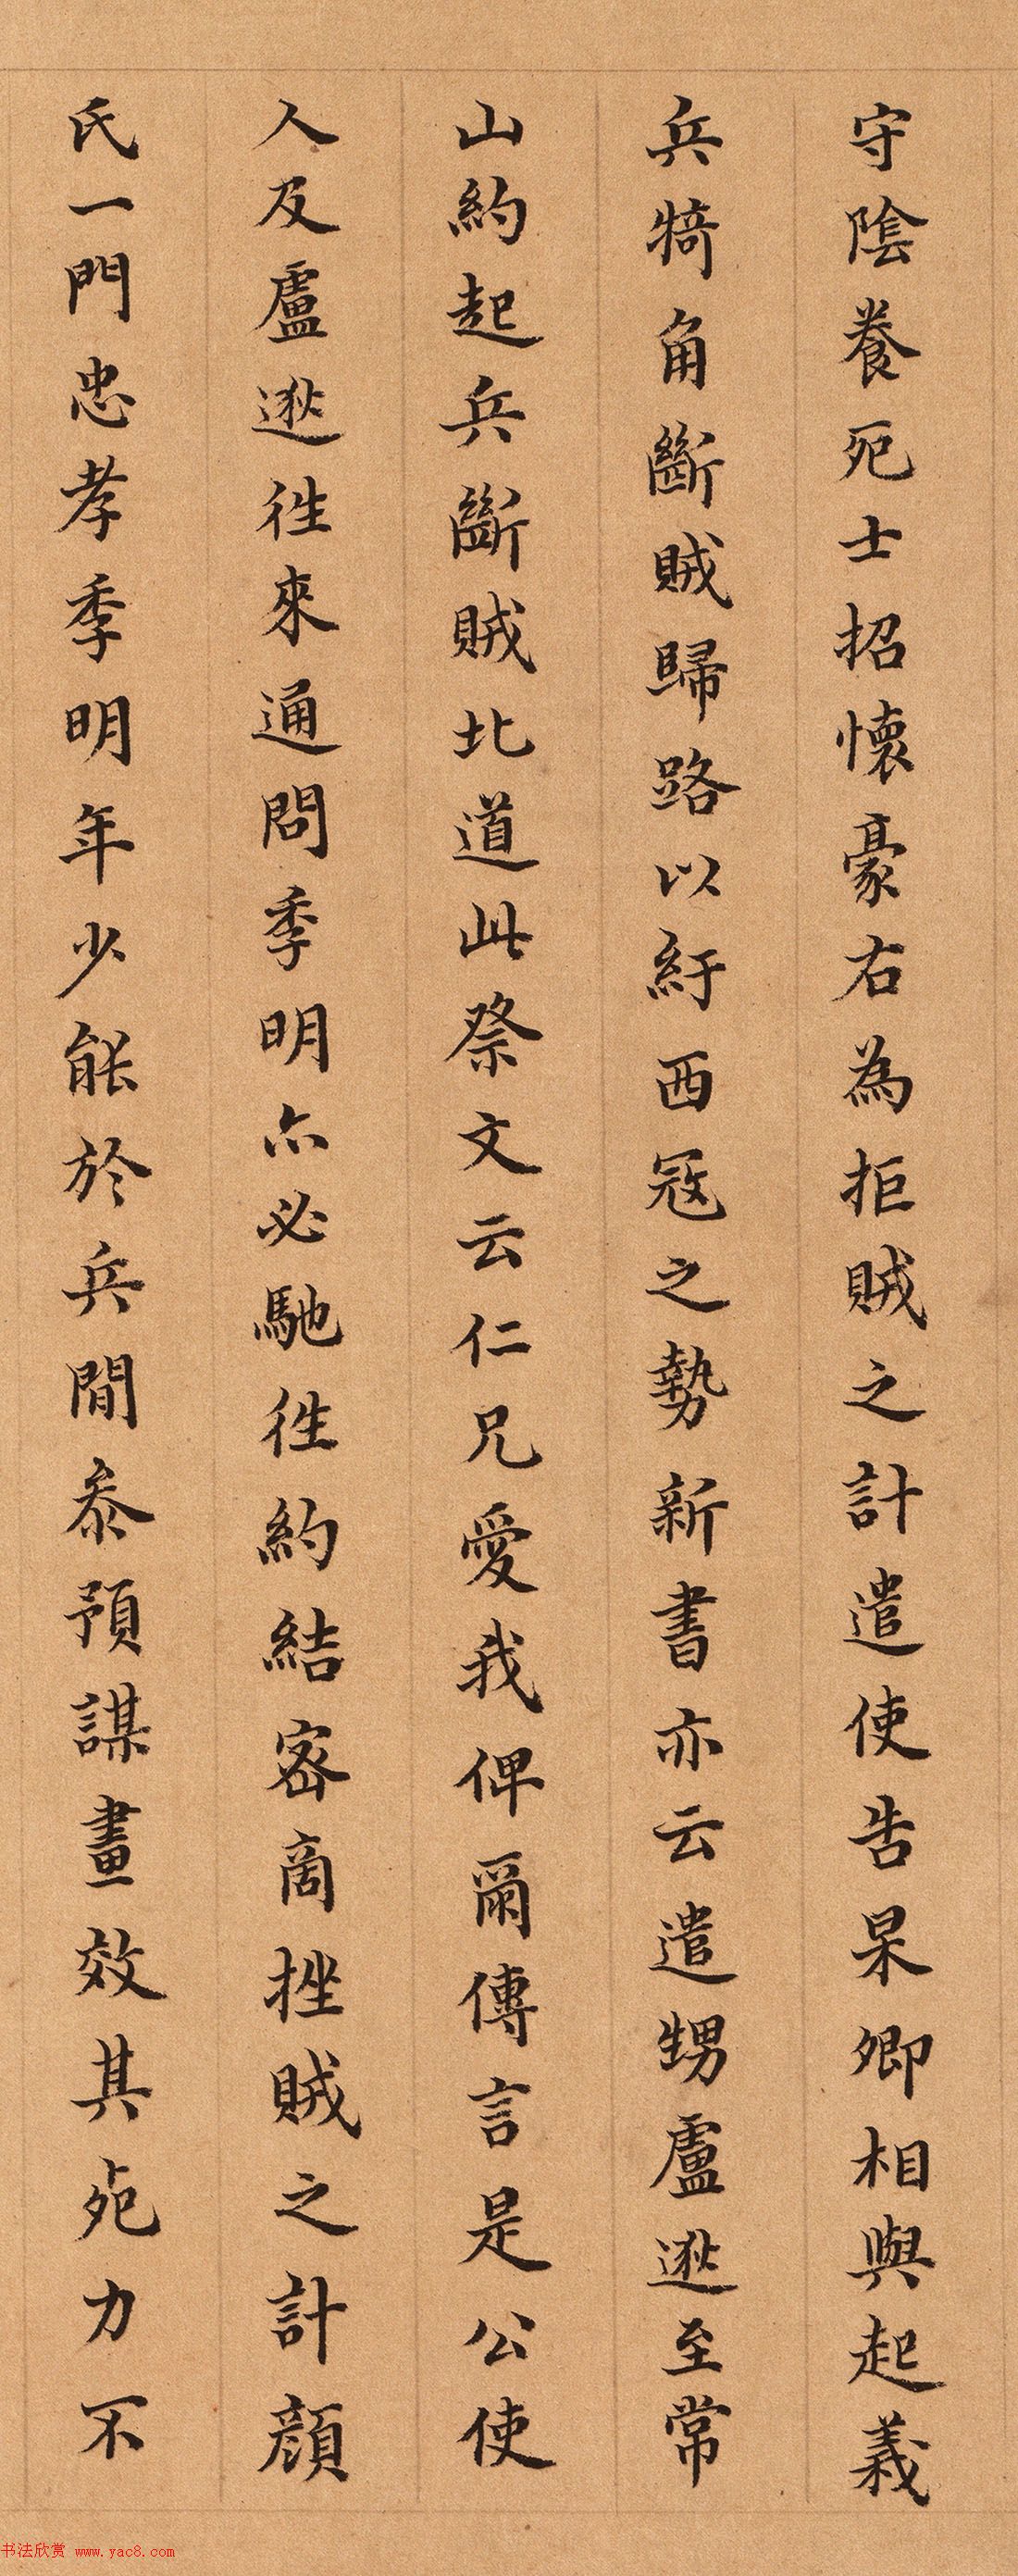 守陰養死士招懷豪右為拒賊之計遣使告杲卿相與起義
兵犄角斷賊歸路以紓西寇之勢新書亦云遣甥盧逖至常
山約起兵斷賊北道此祭文云仁兄愛我俾爾傳言是公使
人及盧逖往來通問季明亦必馳往約結密商挫賊之計顏
氏一門忠孝季明年少能於兵間參預謀畫效其死力不
书法欣赏 www.yac8.com